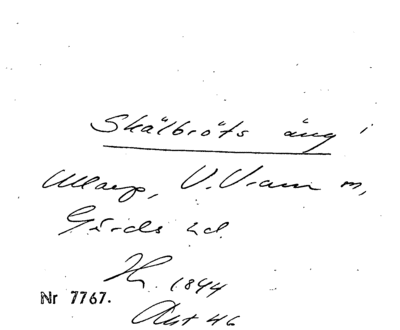 Skälbröts äng i
Ullarp, V. Vram sn,
Gärds hd.
Hz. 1844
Nr 7767.
Akt 46